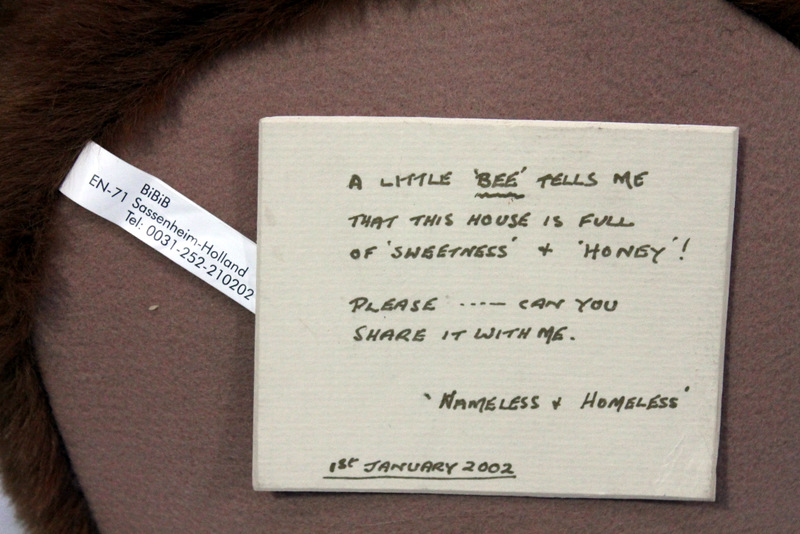 BiBiB
EN-71 Sassenheim-Holland
Tel: 0031-252-210202
A LITTLE 'BEE' TELLS ME
THAT THIS HOUSE IS FULL
OF 'SWEETNESS' & 'HONEY'!
PLEASE ----- CAN YOU
SHARE IT WITH ME.
'NAMELESS & HOMELESS'
1st JANUARY 2002